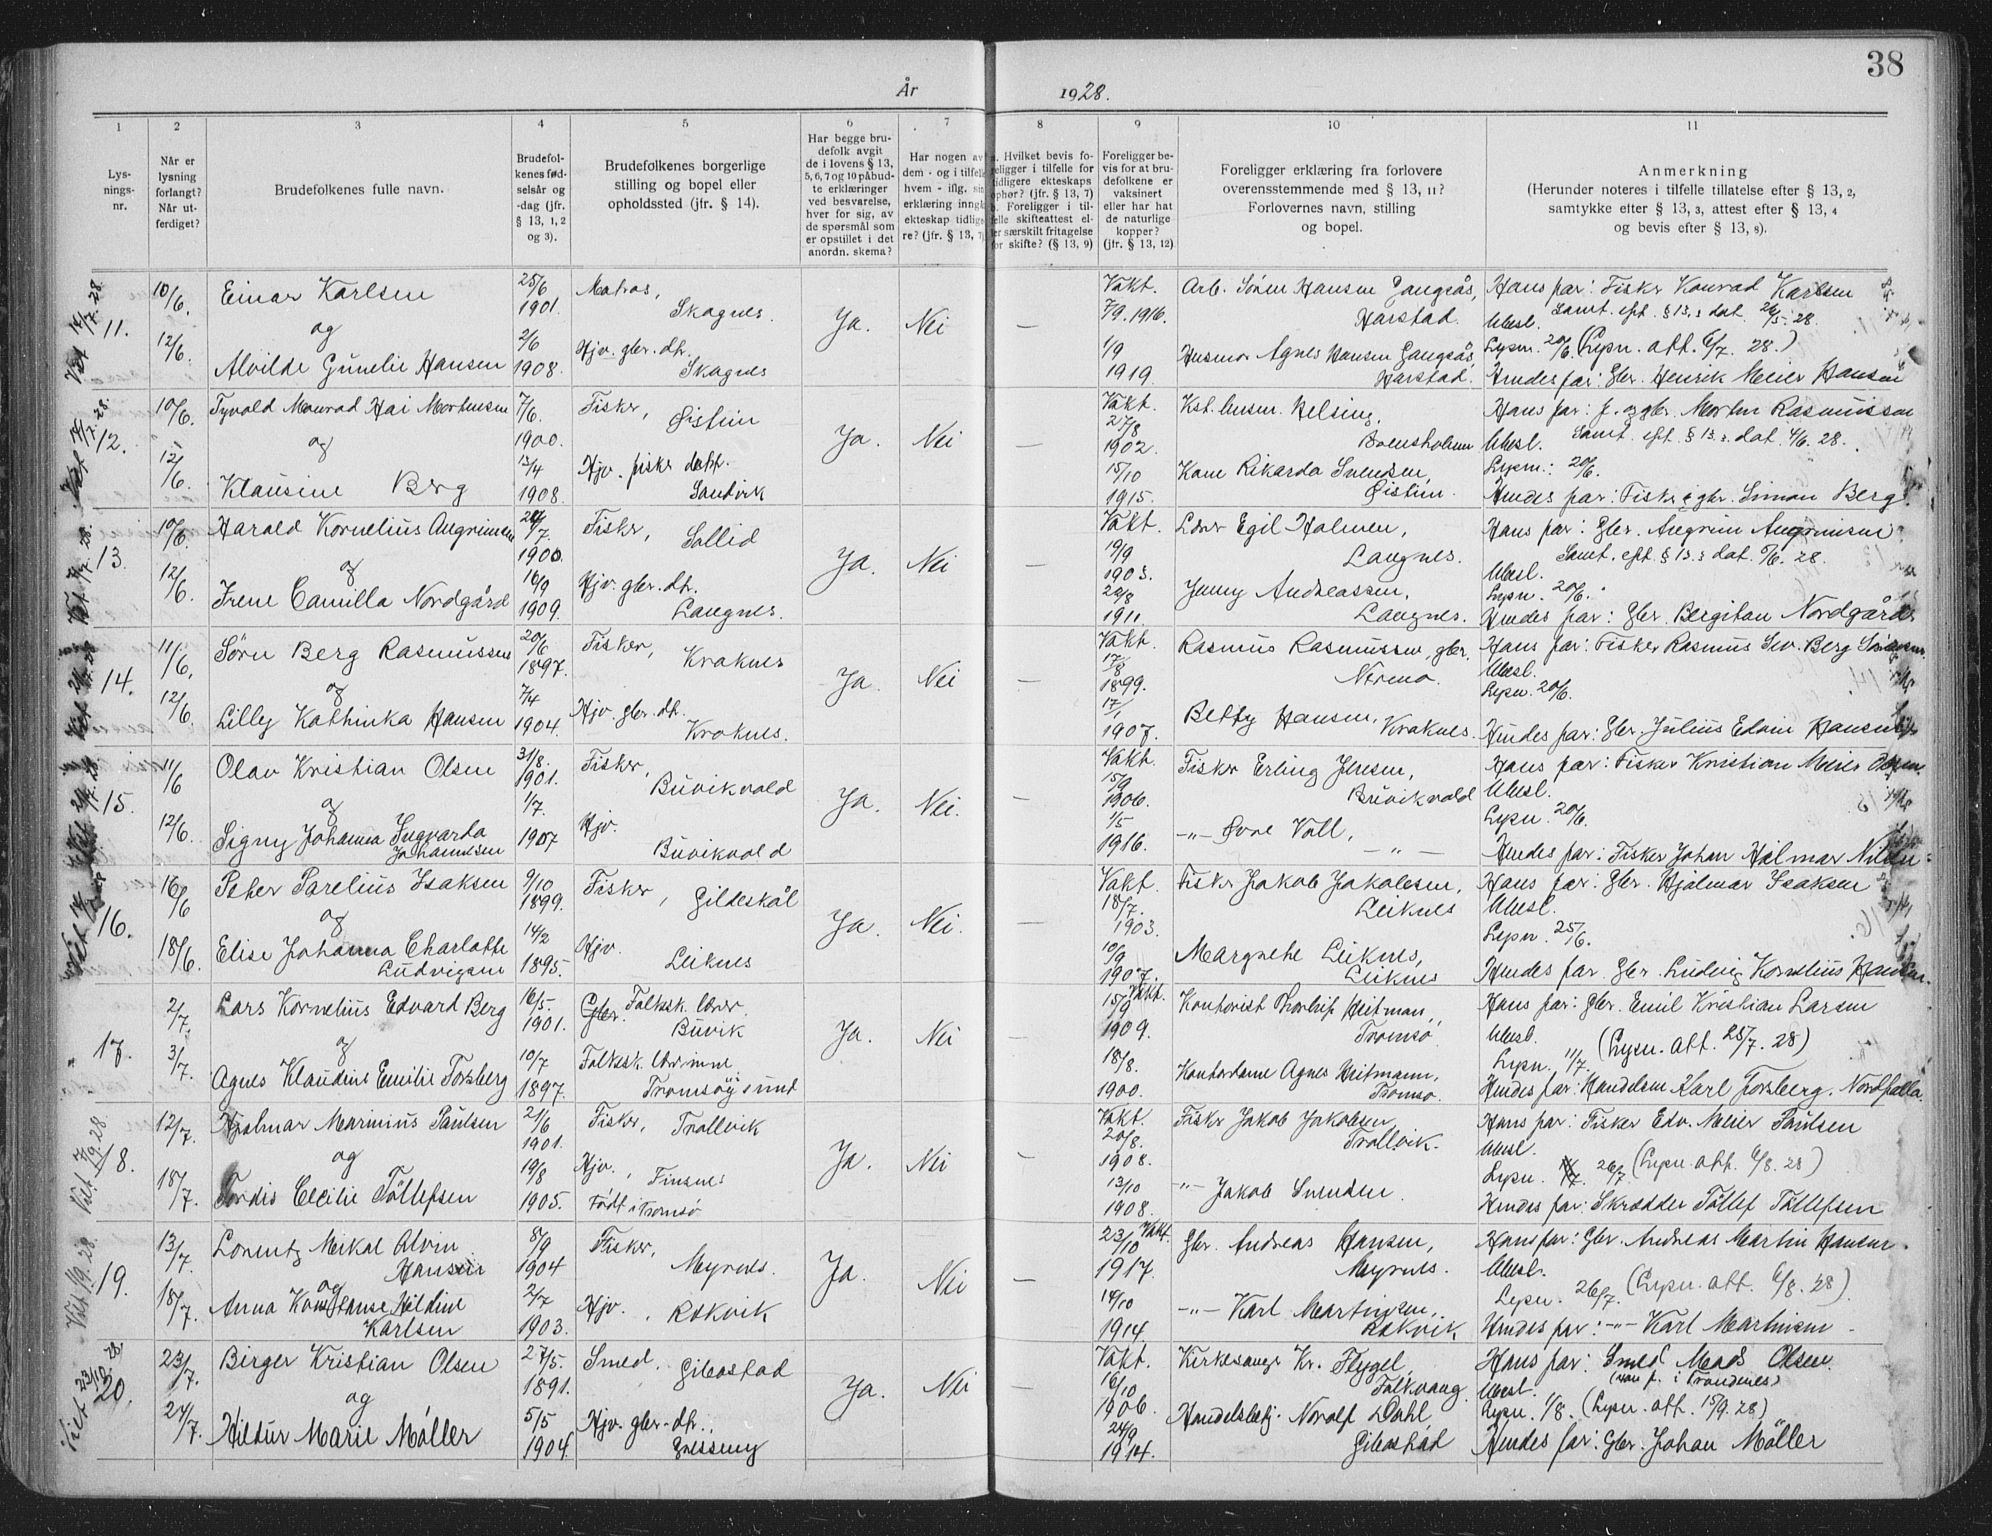 38
År 1928.
1 2 3 4 5 6 7 8 9 10 11
Lys-
nings-
nr.
Når er
lysning
forlangt?
Når ut-
ferdiget?
Brudefolkenes fulle navn.
Brudefol-
kenes fød-
selsår og
-dag (jfr.
§ 13, 1, 2
og 3).
Brudefolkenes borgerlige
stilling og bopel eller
opholdssted (jfr. § 14).
Har begge bru-
defolk avgit
de i lovens § 13,
5, 6, 7 og 10 påbud-
te erklæringer
ved besvarelse,
hver for sig, av
de spørsmål som
er opstillet i det
anordn. skema?
Har nogen av
dem - og i tilfelle
hvem - iflg. sin
erklæring inngå
ekteskap tidlige-
re? (jfr. § 13, 7)
a. Hvilket bevis fo-
religger i tilfelle for
tidligere ekteskaps
ophør? (jfr. § 13, 7)
b. Foreligger i til-
felle skifteattest el-
ler særskilt fritagelse
for skifte? (§ 13, 9)
Foreligger be-
vis for at bru-
defolkene er
vaksinert
eller har hat
de naturlige
kopper?
(jfr. § 13, 12)
Foreligger erklæring fra forlovere
overensstemmende med § 13, 11?
Forlovernes navn, stilling
og bopel.
Anmerkning
(Herunder noteres i tilfelle tillatelse efter § 13, 2,
samtykke efter § 13, 3, attest efter § 13, 4
og bevis efter § 13, 8).
11. 10/6. Einar Karlsen 25/6 1901. Matros, Skognes. Ja. Nei — Vakt. 7/9. 1916. Arb. Sören Hansen Gangsås, Harstad. Hans far: Fisker Konrad Karlsen
og Ubesl. Samt. eft. § 13, 3 dat. 26/5. 28.
12/6. Alvilde Gunelie Hansen 2/6 1908. Hjv. gbr. dtr. Skognes 1/9 1919. Husmor Agnes Hansen Gangsås, Harstad. Lysn. 20/6 (Lysn. att. 6/7. 28.)
Hendes far: Gbr. Henrik Meier Hansen
12. 10/6. Tyvald Monrad Hai Mortensen 7/6. 1900. Fisker, Øistein Ja. Nei — Vakt. 27/8 1902. Hans far: f. og gbr. Morten Rasmussen
og Ubesl. Samt. eft. § 13, 3 dat. 4/6. 28.
12/6. Klausine Berg 13/4 1908. Hjv. fisker datt. Sandvik 15/10 1915. Kone Rikarda Svendsen, Øistein. Lysn.: 20/6.
Hendes far: Fisker & gbr. Simon Berg.
13. 10/6. Harald Kornelius Angrimsen 24/7. 1900. Fisker, Sollid Ja. Nei — Vakt. 19/9 1903. Lærer Egil Holmen, Langnes. Hans far: Gbr. Angrim Angrimsen
og Samt. eft. § 13, 3 dat. 5/6. 28.
Ubesl.
12/6. Irene Camilla Nordgård 16/9 1909. Hjv. gbr. dtr. Langnes. 22/8 1911. Jenny Andreassen, Langnes. Lysn. 20/6.
Hendes far: Gbr. Bergitan Nordgård
14. 11/6. Sörn Berg Rasmussen 20/6 1897. Fisker, Kraknes Ja. Nei — Vakt. 17/8 1899. Rasmus Rasmussen, gbr. Nermo. Hans far: Fisker Rasmus Sev. Berg Sörensen.
og Ubesl.
Lysn. 20/6.
12/6. Lilly Kathinka Hansen 7/4 1904. Hjv. gbr. dtr. Kraknes. 17/1 1907. Betty Hansen, Kraknes. Hendes far: Gbr. Julius Edvin Hansen
15. 11/6 Olav Kristian Olsen 31/8. 1901. Fisker, Buvikvold Ja. Nei. — Vakt. 15/9 1906. Fisker Erling Jensen, Buvikvold Hans far: Fisker Kristian Meier Olsen.
og Ubesl.
Lysn. 20/6.
12/6. Signy Johanna Ingvarda Johannesen 1/7. 1907 Hjv. Buvikvold 1/5 1916. -"- Øvre Voll, -"- Hendes far: Fisker Johan Hilmar Nilsen
16. 16/6 Peter Parelius Isaksen 9/10 1899. Fisker, Gildeskål Ja. Nei. — Vakt. 18/7. 1903. Fisker Jakob Jakobsen, Leiknes Hans far: Gbr. Hjalmar Isaksen
og Ubesl.
Lysn. 25/6.
18/6. Elise Johanna Charlotte Ludvigsen 14/2 1895. Hjv. Leiknes 10/9 1907. Margrethe Leiknes, Leiknes Hendes far Gbr. Ludvig Kornelius Hansen.
17. 2/7. Lars Kornelius Edvard Berg 16/5. 1901. Gbr. Folksk. lærer. Buvik Ja. Nei — 15/9 Vakt. 1909. Kontorist Thorleif Heitman, Tromsø. Hans far: Gbr. Emil Kristian Larsen
og Ubesl. (Lysn. att. 25/7. 28)
Lysn. 11/7.
3/7. Agnes Klaudine Emilie Forsberg 10/7 1897. Folksk. lærerinne Tromsøysund 18/8. 1900. Kontordame Agnes Heitmann, Tromsø. Hendes far: Handelsm. Karl Forsberg.
18. 12/7. Hjalmar Marinius Paulsen 21/6 1901. Fisker, Trollvik Ja. Nei — Vakt. 20/8. 1908. Fisker Jakob Jakobsen Trollvik. Hans far: Fisker Edv. Meier Paulsen
og Ubesl.
Lysn. 26/7 (Lysn. att. 6/8. 28)
18/7. Tordis Cecilie Töllefsen 19/8 1905. Hjv., Finsnes Født i Tromsø 13/10 1908. -"- Jakob Svendsen. Hendes far: Skrædder Töllef Töllefsen
19. 13/7. Lorentz Mikal Alvin Hansen 8/9 1904 Fisker, Myrnes. Ja. Nei — 23/10 Vakt. 1917. Gbr. Andreas Hansen, Myrnes. Hans far: Gbr. Andreas Martin Hansen.
og Ubesl.
Lysn. 26/7. (Lysn. att. 6/8. 28).
18/7. Anna Konstanse Hildine Karlsen 2/7 1903. Hjv., Rækvik 14/10 1914. -"- Karl Martinsen, Rækvik Hendes far: -"- Karl Martinsen
20. 23/7. Birger Kristian Olsen 27/5. 1891. Smed, Gibostad Ja. Nei — Vakt. 16/10 1906. Kirkesanger Kr. Flygel, Folkvang Hans far: Smed Mads Olsen.
og Ubesl.
Lysn. 1/8. (Lysn. att. 15/9. 28)
24/7. Hildur Marie Möller 5/5 1904. Hjv. gbr-dtr., Gressmy 24/9 1914. Handelsbetj. Norolf Dahl, Gibostad Hendes far: Gbr. Johan Möller